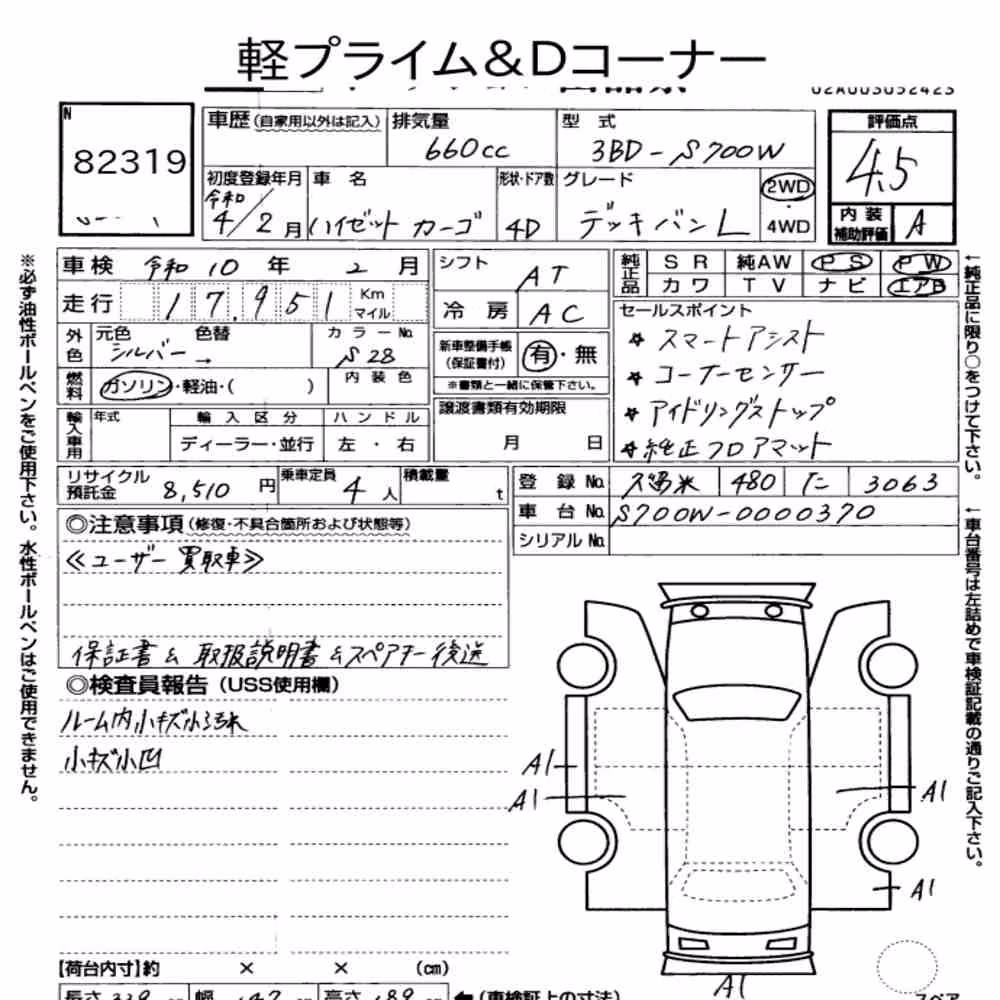 軽プライム&Dコーナー
02A003052423
N
82319
車歴(自家用以外は記入)
排気量
660cc
型 式
3BD-S700W
評価点
4.5
初度登録年月
令和
4/2月
車 名
ハイゼット カーゴ
形状・ドア数
4D
グレード
デッキバン L
2WD
4WD
内 装
補助評価
A
車 検 令和 10 年 2 月
走行 17,951 Km
マイル
シフト
AT
冷 房
AC
純正品 SR 純AW PS PW
カワ TV ナビ エアB
外色
元色
色替
シルバー →
カラーNo.
S28
新車整備手帳
(保証書付)
有・無
※書類と一緒に保管下さい。
セールスポイント
☆ スマートアシスト
☆ コーナーセンサー
☆ アイドリングストップ
☆ 純正フロアマット
燃料
ガソリン・軽油・( )
内装色
輸入車用
年式
輸入区分
ハンドル
ディーラー・並行
左・右
譲渡書類有効期限
月 日
リサイクル
預託金
8,510 円
乗車定員
4 人
積載量
t
登 録 No. 久留米 480 た 3063
車 台 No. S700W-0000370
シリアル No.
◎注意事項(修復・不具合箇所および状態等)
≪ユーザー買取車≫
保証書 & 取扱説明書 & スペアキー後送
◎検査員報告(USS使用欄)
ルーム内小キズ小汚れ
小キズ小凹
A1
A1
A1
A1
A1
【荷台内寸】約 × × (cm)
長さ 339
幅 147
高さ 189
(車検証上の寸法)
スペア
※必ず油性ボールペンをご使用下さい。水性ボールペンはご使用できません。
←純正品に限り○をつけて下さい。
←車台番号は左詰めで車検証記載の通りご記入下さい。